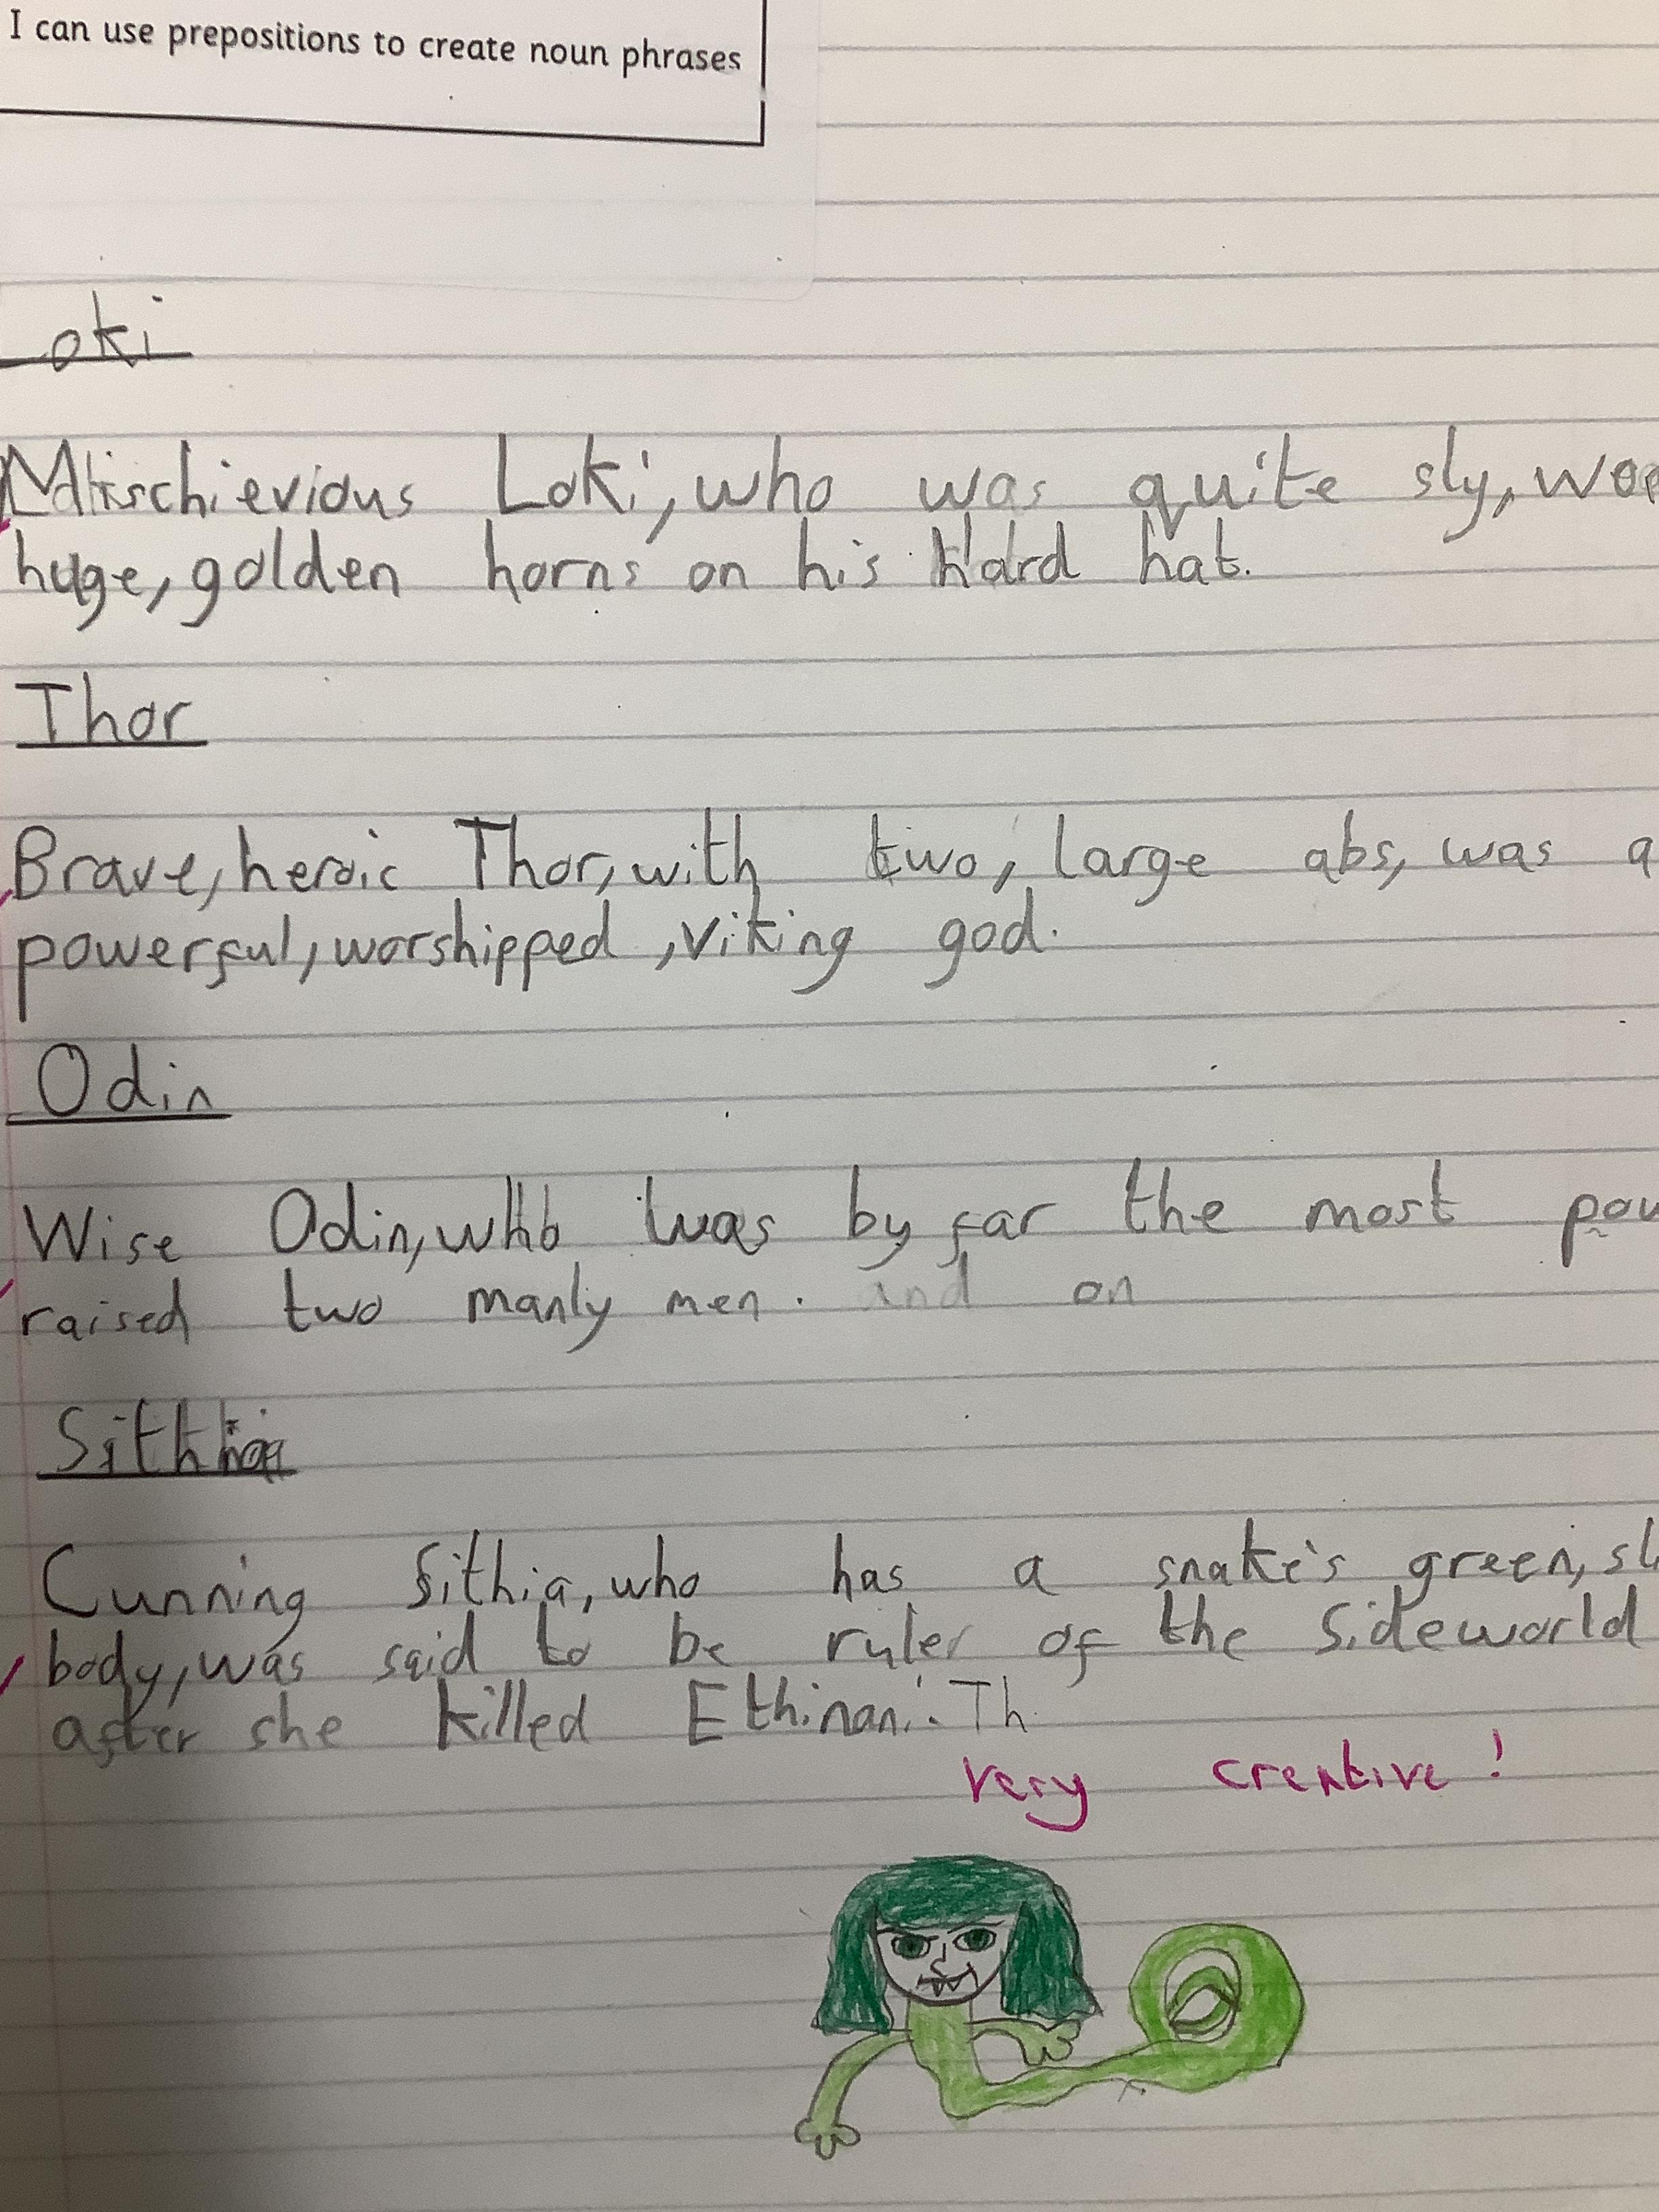 I can use prepositions to create noun phrases
Loki
Mischievious Loki, who was quite sly,
huge, golden horns on his Hard hat.
Thor
Brave, heroic Thor, with two, large abs, was a
powerful, worshipped, viking god.
Odin
Wise Odin, who was by far the most
raised two manly men. and on
Sithia
Cunning Sithia, who has a snake's green,
body, was said to be ruler of the sideworld
after she killed Ethinani. Th
very creative!